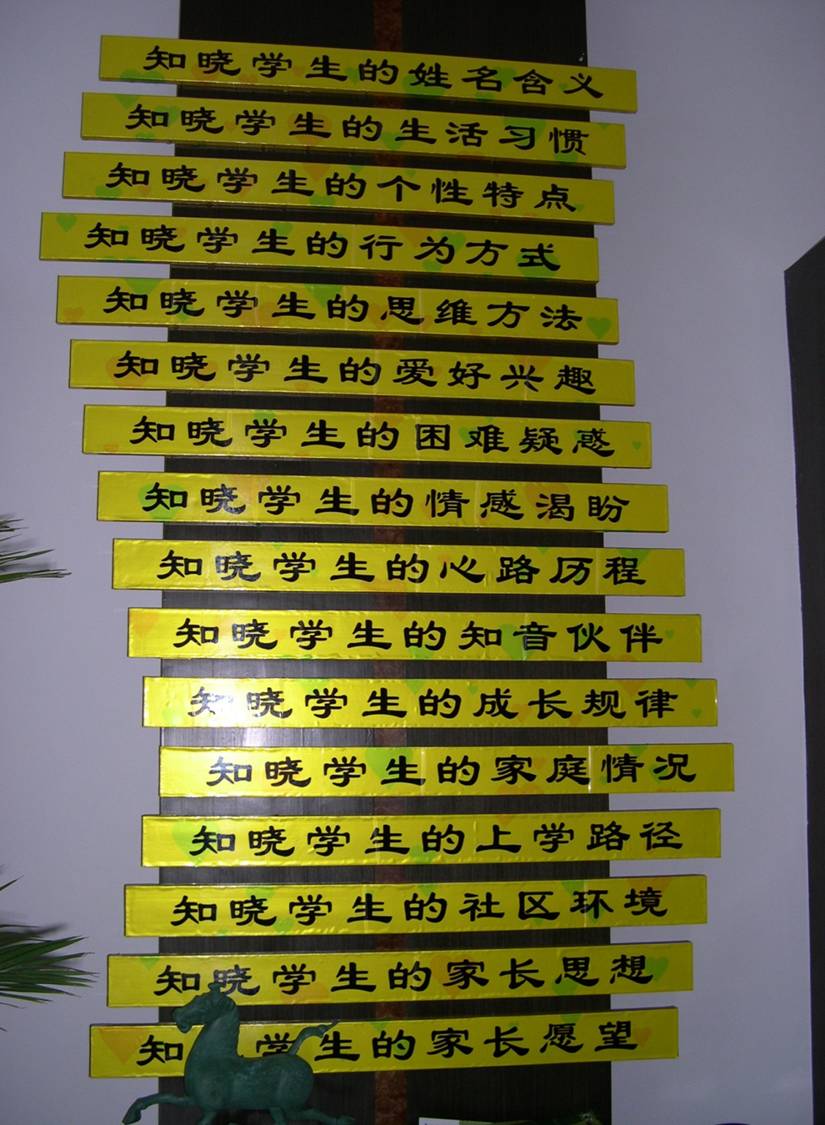 知晓学生的姓名含义
知晓学生的生活习惯
知晓学生的个性特点
知晓学生的行为方式
知晓学生的思维方法
知晓学生的爱好兴趣
知晓学生的困难疑惑
知晓学生的情感渴盼
知晓学生的心路历程
知晓学生的知音伙伴
知晓学生的成长规律
知晓学生的家庭情况
知晓学生的上学路径
知晓学生的社区环境
知晓学生的家长思想
知学生的家长愿望